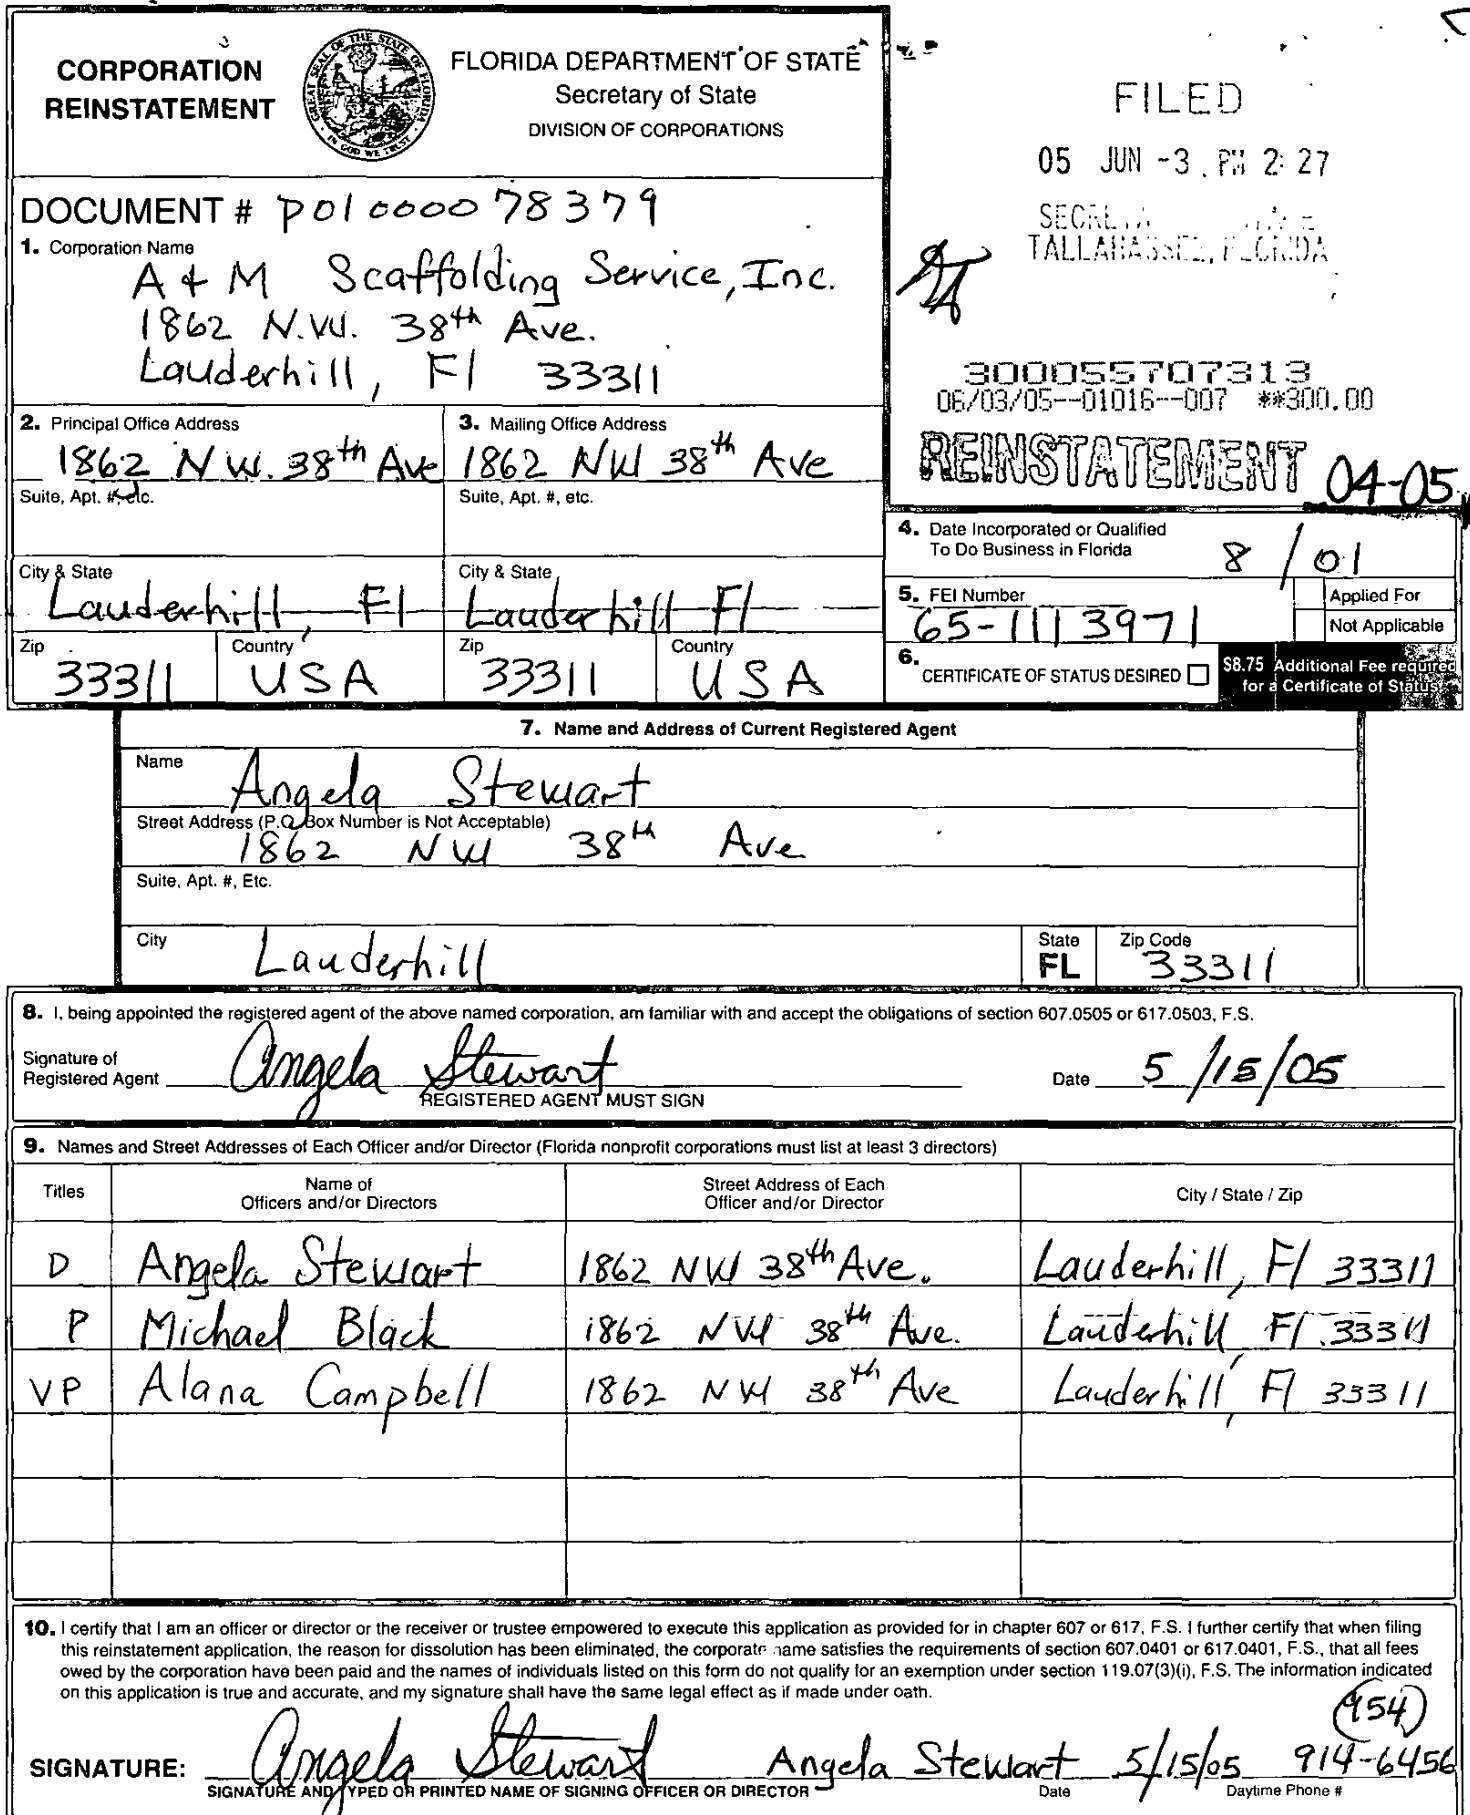 CORPORATION
REINSTATEMENT
GREAT SEAL OF THE STATE OF FLORIDA
IN GOD WE TRUST
FLORIDA DEPARTMENT OF STATE
Secretary of State
DIVISION OF CORPORATIONS
FILED
05 JUN -3 PM 2:27
TALLAHASSEE, FLORIDA
DOCUMENT # P01000078379
1. Corporation Name
A & M Scaffolding Service, Inc.
1862 N.W. 38th Ave.
Lauderhill, Fl 33311
300055707313
06/03/05--01016--007 **300.00
REINSTATEMENT 04-05
2. Principal Office Address
1862 N W. 38th Ave
Suite, Apt. #, etc.
City & State
Lauderhill, Fl
Zip
33311
Country
USA
3. Mailing Office Address
1862 NW 38th Ave
Suite, Apt. #, etc.
City & State
Lauderhill Fl
Zip
33311
Country
USA
4. Date Incorporated or Qualified
To Do Business in Florida
8/01
5. FEI Number
65-1113971
Applied For
Not Applicable
6. CERTIFICATE OF STATUS DESIRED
$8.75 Additional Fee required
for a Certificate of Status
7. Name and Address of Current Registered Agent
Name
Angela Stewart
Street Address (P.O. Box Number is Not Acceptable)
1862 NW 38th Ave
Suite, Apt. #, Etc.
City
Lauderhill
State
FL
Zip Code
33311
8. I, being appointed the registered agent of the above named corporation, am familiar with and accept the obligations of section 607.0505 or 617.0503, F.S.
Signature of
Registered Agent Angela Stewart Date 5/15/05
REGISTERED AGENT MUST SIGN
9. Names and Street Addresses of Each Officer and/or Director (Florida nonprofit corporations must list at least 3 directors)
Titles
Name of
Officers and/or Directors
Street Address of Each
Officer and/or Director
City / State / Zip
D Angela Stewart 1862 NW 38th Ave. Lauderhill, Fl 33311
P Michael Black 1862 NW 38th Ave. Lauderhill, Fl 33311
VP Alana Campbell 1862 NW 38th Ave Lauderhill, Fl 33311
10. I certify that I am an officer or director or the receiver or trustee empowered to execute this application as provided for in chapter 607 or 617, F.S. I further certify that when filing
this reinstatement application, the reason for dissolution has been eliminated, the corporate name satisfies the requirements of section 607.0401 or 617.0401, F.S., that all fees
owed by the corporation have been paid and the names of individuals listed on this form do not qualify for an exemption under section 119.07(3)(i), F.S. The information indicated
on this application is true and accurate, and my signature shall have the same legal effect as if made under oath.
(954)
SIGNATURE: Angela Stewart Angela Stewart 5/15/05 914-6456
SIGNATURE AND TYPED OR PRINTED NAME OF SIGNING OFFICER OR DIRECTOR Date Daytime Phone #